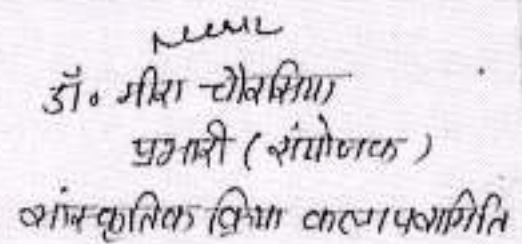 डॉ॰ मीरा चौरसिया
प्रभारी (संयोजक)
सांस्कृतिक क्रिया कलाप समिति